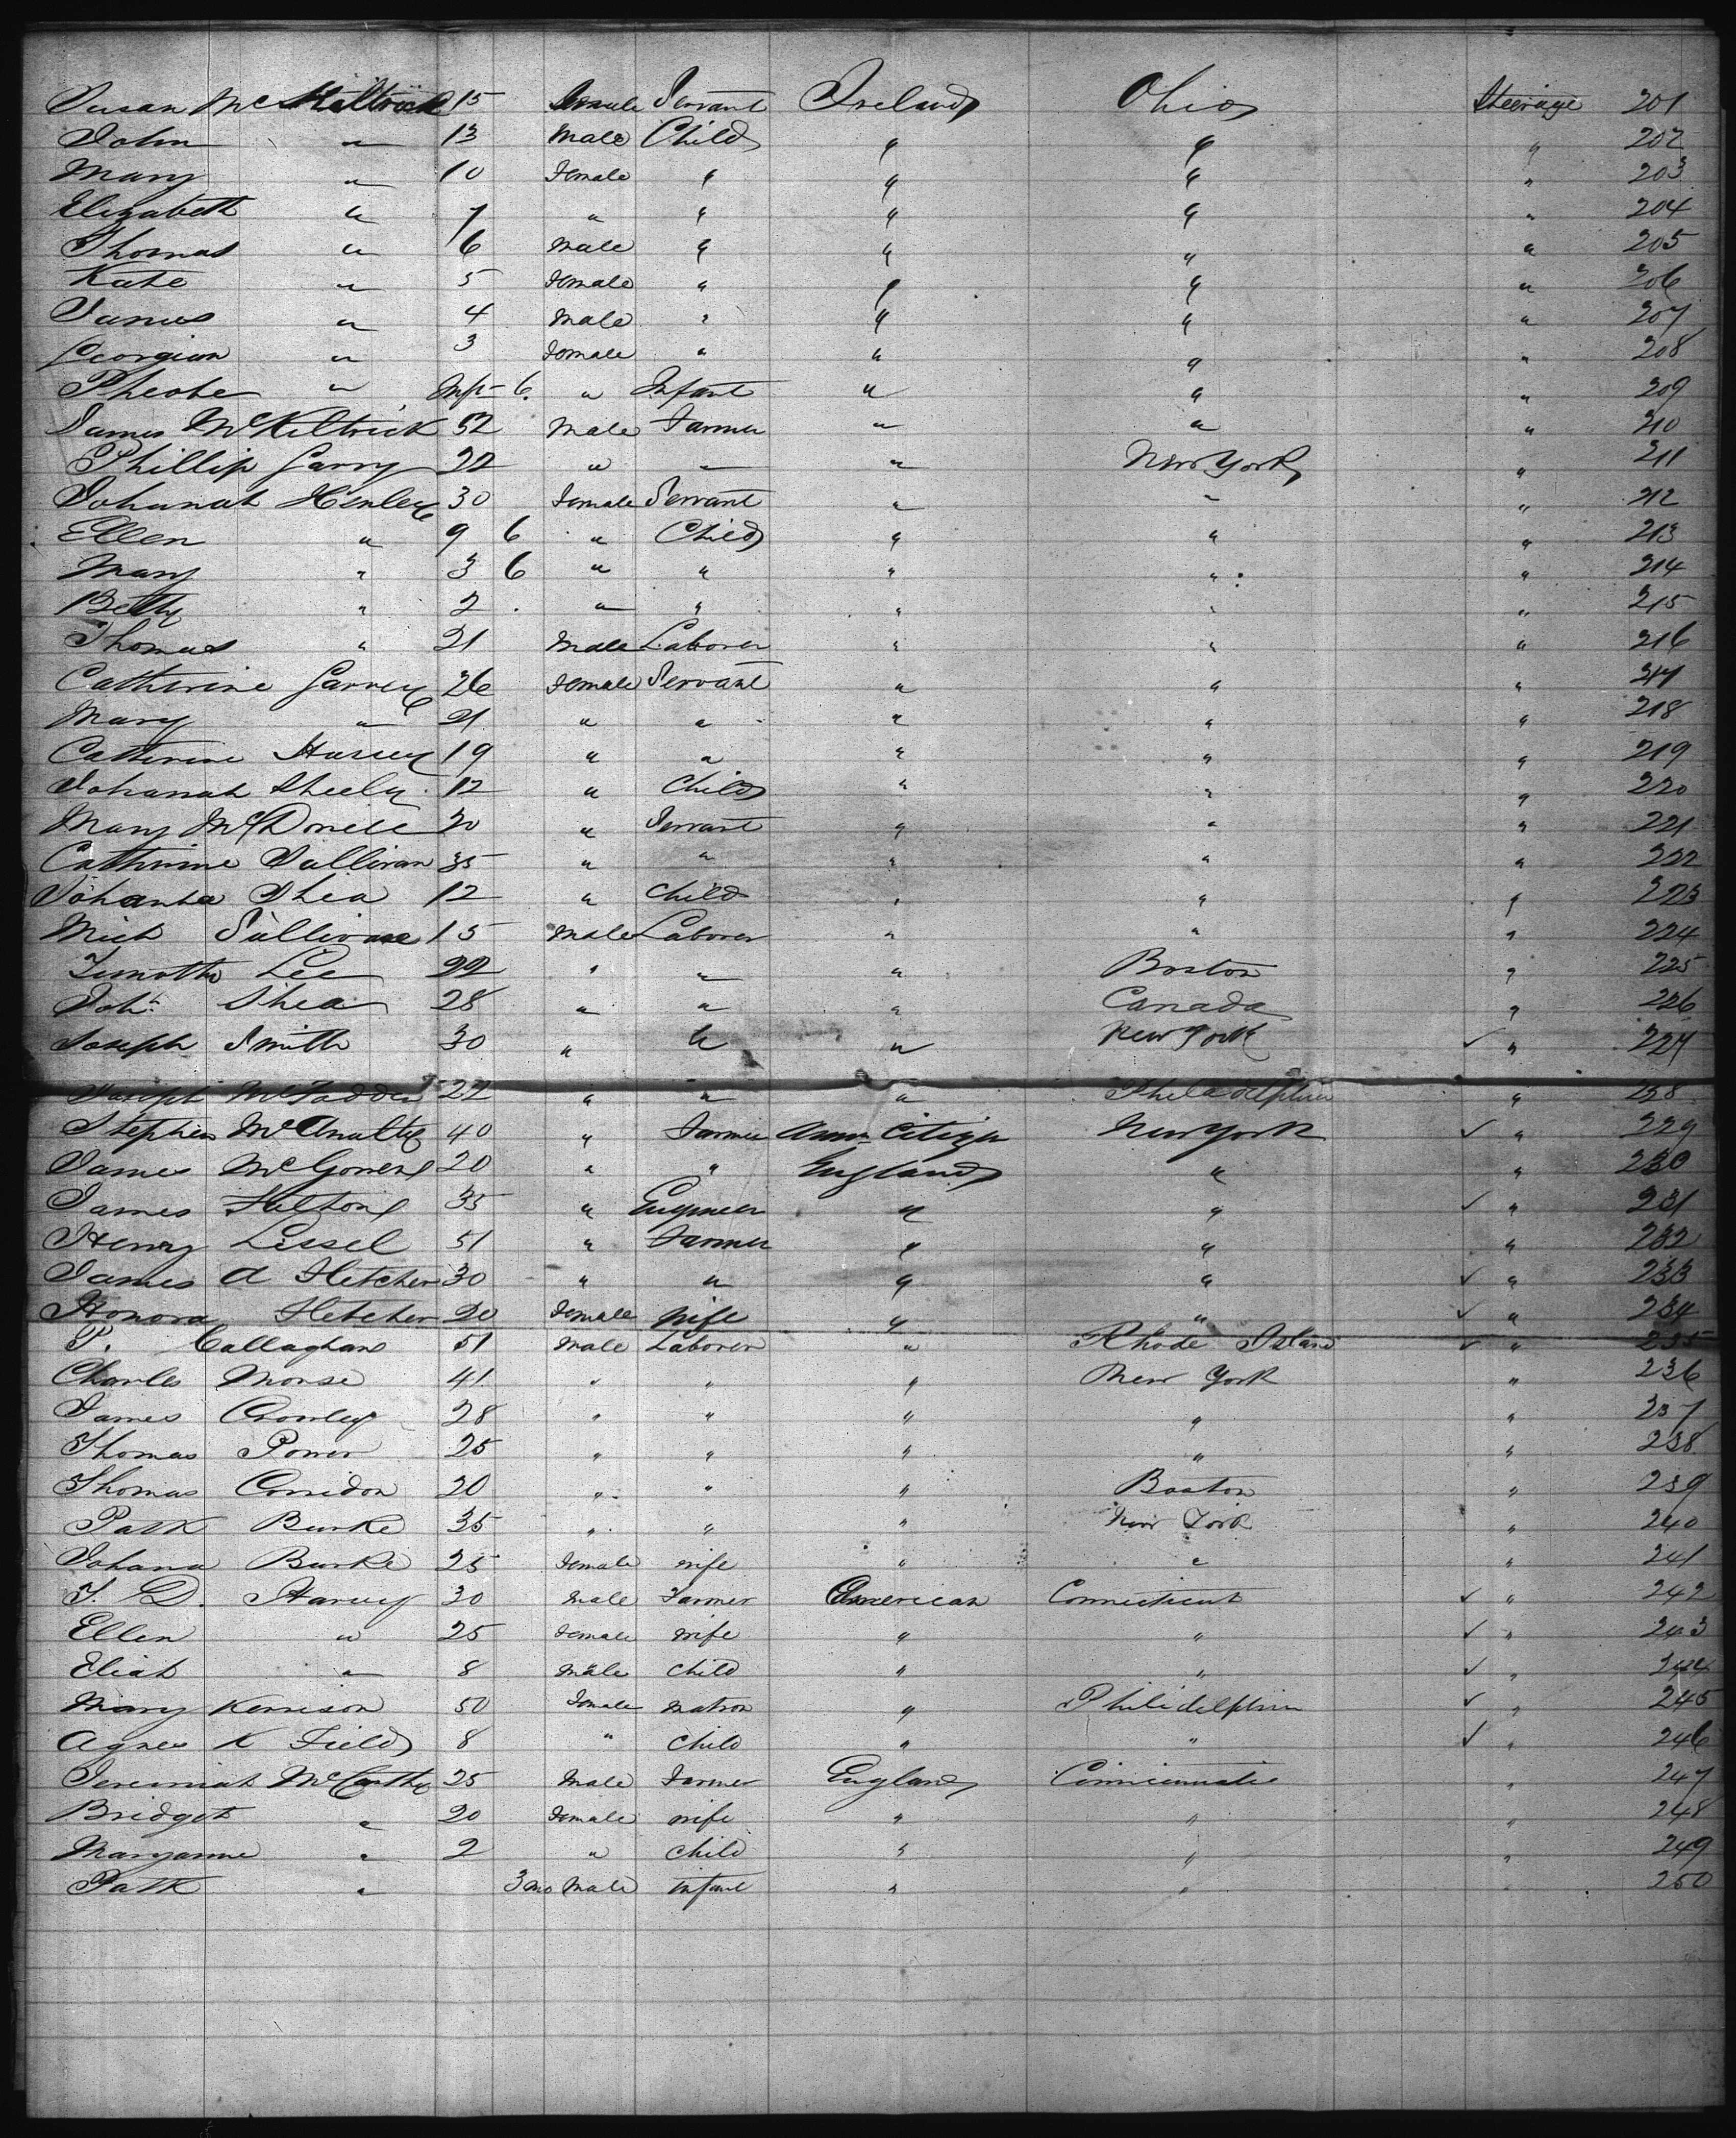 Susan Mc Kiltrick 15 Female Servant Ireland Ohio Steerage 201
John " 13 Male Child " " " 202
Mary " 10 Female " " " " 203
Elizabeth " 7 " " " " " 204
Thomas " 6 Male " " " " 205
Kate " 5 Female " " " " 206
James " 4 Male " " " " 207
Georgian " 3 Female " " " " 208
Pheobe " 6 " Infant " " " 209
James McKiltrick 52 Male Farmer " " " 210
Phillip Garry 22 " " " New York " 211
Johanah Henley 30 Female Servant " " " 212
Ellen " 9 6 " Child " " " 213
Mary " 3 6 " " " " " 214
Betty " 2 " " " " " 215
Thomas " 21 Male Laborer " " " 216
Catherine Garvey 26 Female Servant " " " 217
Mary " 21 " " " " " 218
Catherine Hussey 19 " " " " " 219
Johanah Sheely 12 " Child " " " 220
Mary McDonell 20 " Servant " " " 221
Catherine Sullivan 35 " " " " " 222
Johanna Shea 12 " Child " " " 223
Mich Sullivan 15 Male Laborer " " " 224
Timothy Lee 22 " " " Boston " 225
Joh. Shea 28 " " " Canada " 226
Joseph Smith 30 " " " New York ✓ " 227
Joseph McFadden 22 " " " Philadelphia " 228
Stephen McAnulty 40 " Farmer Amn Citizn New York ✓ " 229
James McGovern 20 " " England " " 230
James Hilton 35 " Engineer " " ✓ " 231
Henry Lessel 51 " Farmer " " " 232
James A Fletcher 30 " " " " ✓ " 233
Honora Fletcher 20 Female Wife " " ✓ " 234
P. Callaghan 51 Male Laborer " Rhode Island ✓ " 235
Charles Morse 41 " " " New York " 236
James Crowley 28 " " " " " 237
Thomas Power 25 " " " " " 238
Thomas Corridon 20 " " " Boston " 239
Patk Burke 35 " " " New York " 240
Johana Burke 25 Female Wife " " " 241
J. D. Harvey 30 Male Farmer American Connecticut ✓ " 242
Ellen " 25 Female Wife " " ✓ " 243
Eliah " 8 Male Child " " ✓ " 244
Mary Kenison 50 Female Matron " Philidelphia ✓ " 245
Agnes K Field 8 " Child " " ✓ " 246
Jeremiah McCarthy 25 Male Farmer England Cinncinnatie " 247
Bridget " 20 Female Wife " " " 248
Maryanne " 2 " Child " " " 249
Patk " 3 mo Male Infant " " " 250